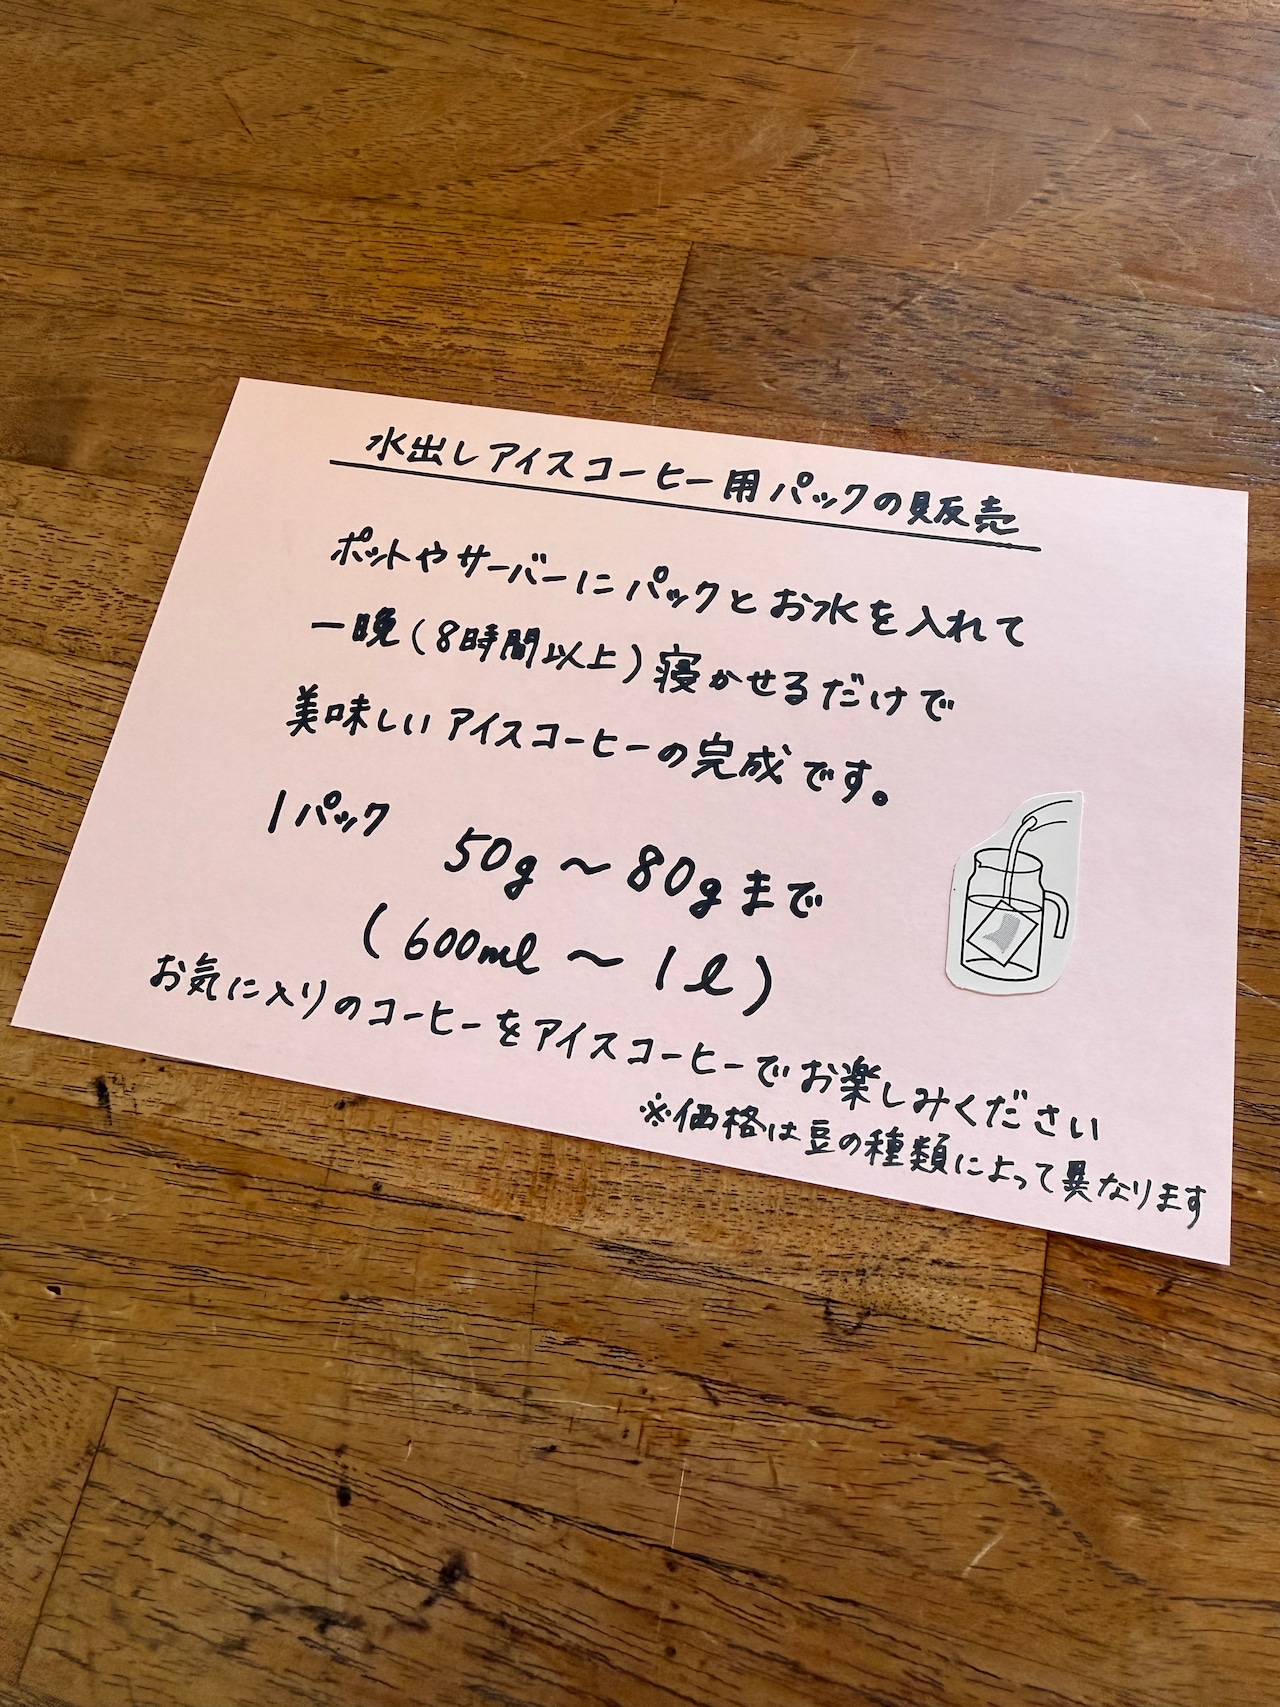 水出しアイスコーヒー用パックの販売
ポットやサーバーにパックとお水を入れて
一晩(8時間以上)寝かせるだけで
美味しいアイスコーヒーの完成です。
1パック 50g〜80gまで
(600ml〜1l)
お気に入りのコーヒーをアイスコーヒーでお楽しみください
※価格は豆の種類によって異なります